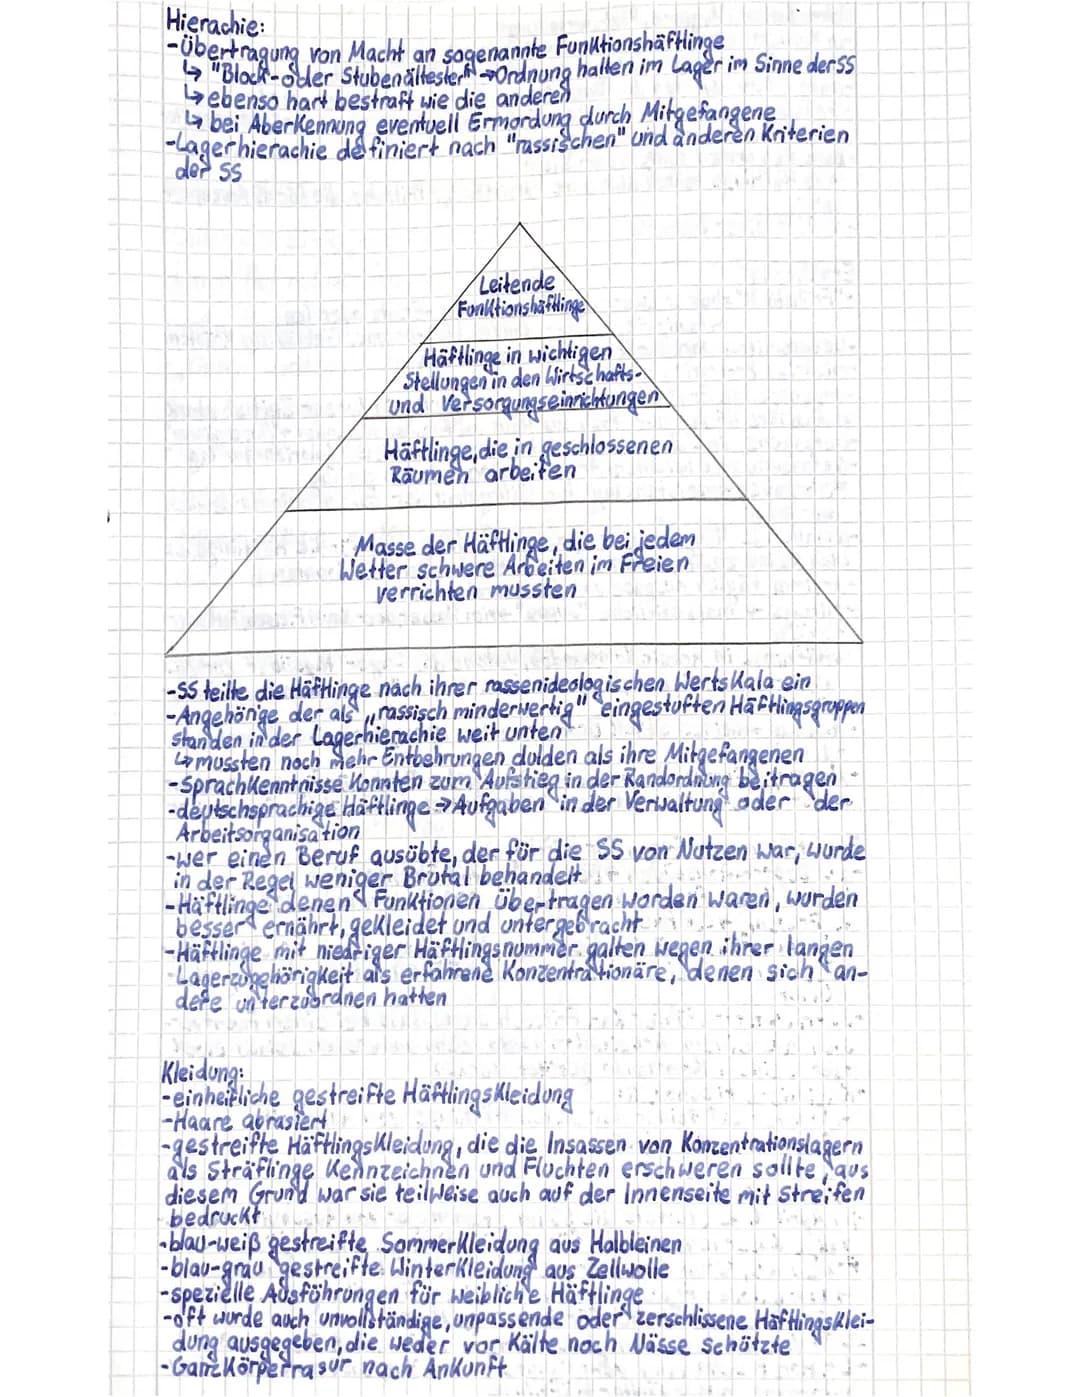 Hierachie:
-Übertragung von Macht an sogenannte Funktionshäftlinge
↳ "Block-oder Stubenältester" →Ordnung halten im Lager im Sinne der SS
↳ ebenso hart bestraft wie die anderen
↳ bei Aberkennung eventuell Ermordung durch Mitgefangene
-Lagerhierachie definiert nach "rassischen" und anderen Kriterien
der SS
Leitende
Funktionshäftlinge
Häftlinge in wichtigen
Stellungen in den Wirtschafts-
und Versorgungseinrichtungen
Häftlinge, die in geschlossenen
Räumen arbeiten
Masse der Häftlinge, die bei jedem
Wetter schwere Arbeiten im Freien
verrichten mussten
-SS teilte die Häftlinge nach ihrer rassenideologischen Wertskala ein
-Angehörige der als „rassisch minderwertig" eingestuften Häftlingsgruppen
standen in der Lagerhierachie weit unten
↳ mussten noch mehr Entbehrungen dulden als ihre Mitgefangenen
-Sprachkenntnisse konnten zum Aufstieg in der Randordnung beitragen
-deutschsprachige Häftlinge → Aufgaben in der Verwaltung oder der
Arbeitsorganisation
-wer einen Beruf ausübte, der für die SS von Nutzen war, wurde
in der Regel weniger Brutal behandelt
-Häftlinge denen Funktionen übertragen worden waren, wurden
besser ernährt, gekleidet und untergebracht
-Häftlinge mit niedriger Häftlingsnummer galten wegen ihrer langen
Lagerzugehörigkeit als erfahrene Konzentrationäre, denen sich an-
dere unterzuordnen hatten
Kleidung:
-einheitliche gestreifte Häftlingskleidung
-Haare abrasiert
-gestreifte Häftlingskleidung, die die Insassen von Konzentrationslagern
als Sträflinge kennzeichnen und Fluchten erschweren sollte, aus
diesem Grund war sie teilweise auch auf der Innenseite mit Streifen
bedruckt
-blau-weiß gestreifte Sommerkleidung aus Halbleinen
-blau-grau gestreifte Winterkleidung aus Zellwolle
-spezielle Ausführungen für weibliche Häftlinge
-oft wurde auch unvollständige, unpassende oder zerschlissene Häftlingsklei-
dung ausgegeben, die weder vor Kälte noch Nässe schützte
-Ganzkörperrasur nach Ankunft